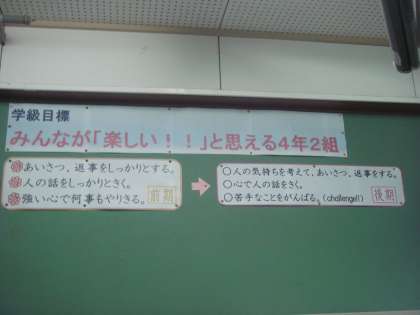 学級目標
みんなが「楽しい!!」と思える4年2組
あいさつ、返事をしっかりとする。
人の話をしっかりときく。
強い心で何事もやりきる。
前期
○人の気持ちを考えて、あいさつ、返事をする。
○心で人の話をきく。
○苦手なことをがんばる。(challenge!!)
後期